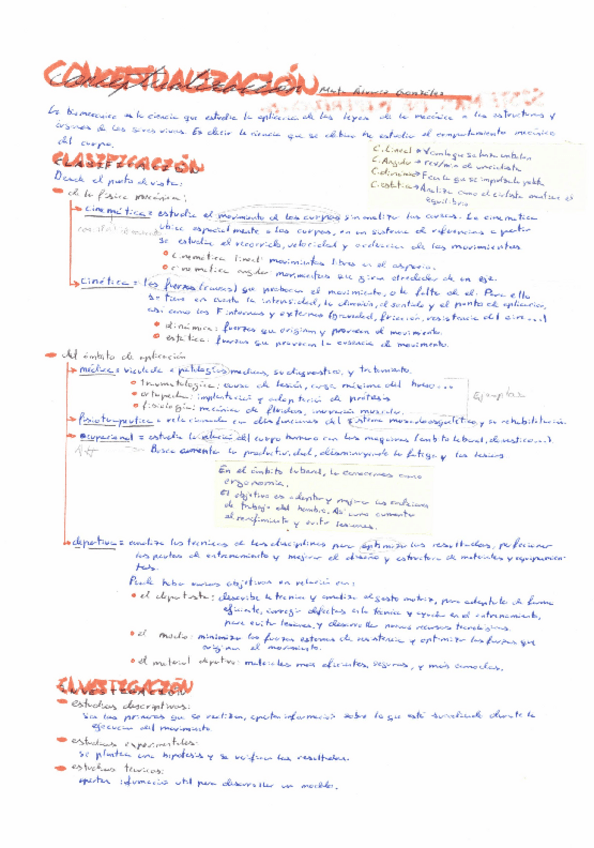 CONCEPTUALIZACIÓN
La Biomecánica es la ciencia que estudia la aplicación de las leyes de la mecánica a las estructuras y
órganos de los seres vivos. Es decir la ciencia que se ocupa de estudiar el comportamiento mecánico
del cuerpo.
C. Lineal →
C. Angular →
C. dinámica →
C. estática → Analiza como el ciclista mantiene el
equilibrio
CLASIFICACIÓN
Desde el punto de vista:
de la física mecánica:
cinemática = estudia el movimiento de los cuerpos sin analizar las causas. La cinemática
ubica espacialmente a los cuerpos, en un sistema de referencias a partir
se estudia el recorrido, velocidad y aceleración de los movimientos
cinemática lineal: movimientos libres en el espacio.
cinemática angular movimientos que giran alrededor de un eje.
Cinética = las fuerzas (causas) que producen el movimiento, o la falta de él. Para ello
se tiene en cuenta la intensidad, la dirección, el sentido y el punto de aplicación,
así como las F internas y externas (gravedad, fricción, resistencia del aire...)
dinámica: fuerzas que originan y provocan el movimiento.
estática: fuerzas que provocan la ausencia de movimiento.
del ámbito de aplicación
médica = vinculada a patologías médicas, su diagnóstico, y tratamiento.
traumatológica: causa de lesión, carga máxima del hueso...
ortopedia: implantación y adaptación de prótesis
fisiología: mecánica de fluidos, inervación muscular.
Ejemplos
fisioterapéutica = relacionada con disfunciones del sistema musculoesquelético y su rehabilitación.
ocupacional = estudia la relación del cuerpo humano con las máquinas (ámbito laboral, doméstico...).
Busca aumentar la productividad, disminuyendo la fatiga y las lesiones
En el ámbito laboral, la conocemos como
ergonomía.
El objetivo es adaptar y mejorar las condiciones
de trabajo del hombre. Así como aumentar
el rendimiento y evitar lesiones.
deportiva = analiza las técnicas de las disciplinas para optimizar los resultados, perfeccionar
las pautas de entrenamiento y mejorar el diseño y estructura de materiales y equipamientos.
Puede tener varios objetivos en relación con:
el deportista: describir la técnica y analizar el gesto motriz, para adaptarlo de forma
eficiente, corregir defectos en la técnica y ayudar en el entrenamiento,
para evitar lesiones, y desarrollar nuevos recursos tecnológicos.
el medio: minimizar las fuerzas externas de resistencia y optimizar las fuerzas que
originan el movimiento.
el material deportivo: materiales más eficientes, seguros, y más cómodos.
INVESTIGACIÓN
estudios descriptivos:
son los primeros que se realizan, aportan información sobre lo que está sucediendo durante la
ejecución del movimiento.
estudios experimentales:
se plantea una hipótesis y se verifican los resultados.
estudios teóricos:
aportan información útil para desarrollar un modelo.